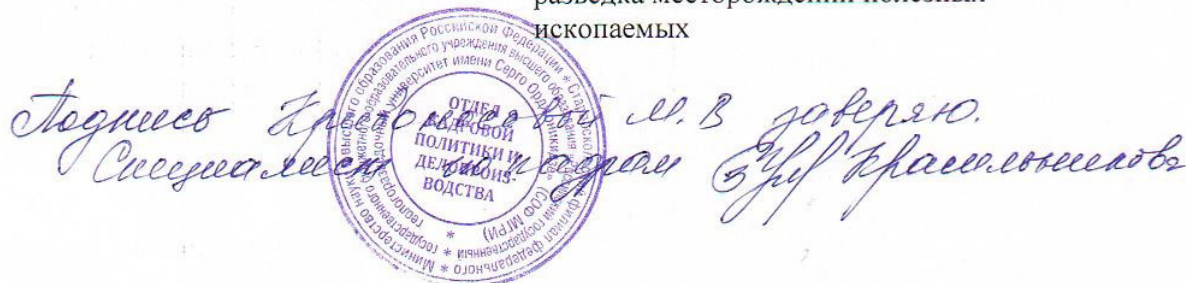 разведка месторождений полезных
ископаемых
Подпись М.В заверяю.
Специалист по кадрам Красильникова
ОТДЕЛ
КАДРОВОЙ
ПОЛИТИКИ И
ДЕЛОПРОИЗ-
ВОДСТВА
Министерство науки и высшего образования Российской Федерации * Старооскольский филиал федерального
государственного бюджетного образовательного учреждения высшего образования «Российский государственный
геологоразведочный университет имени Серго Орджоникидзе» (СОФ МГРИ) *